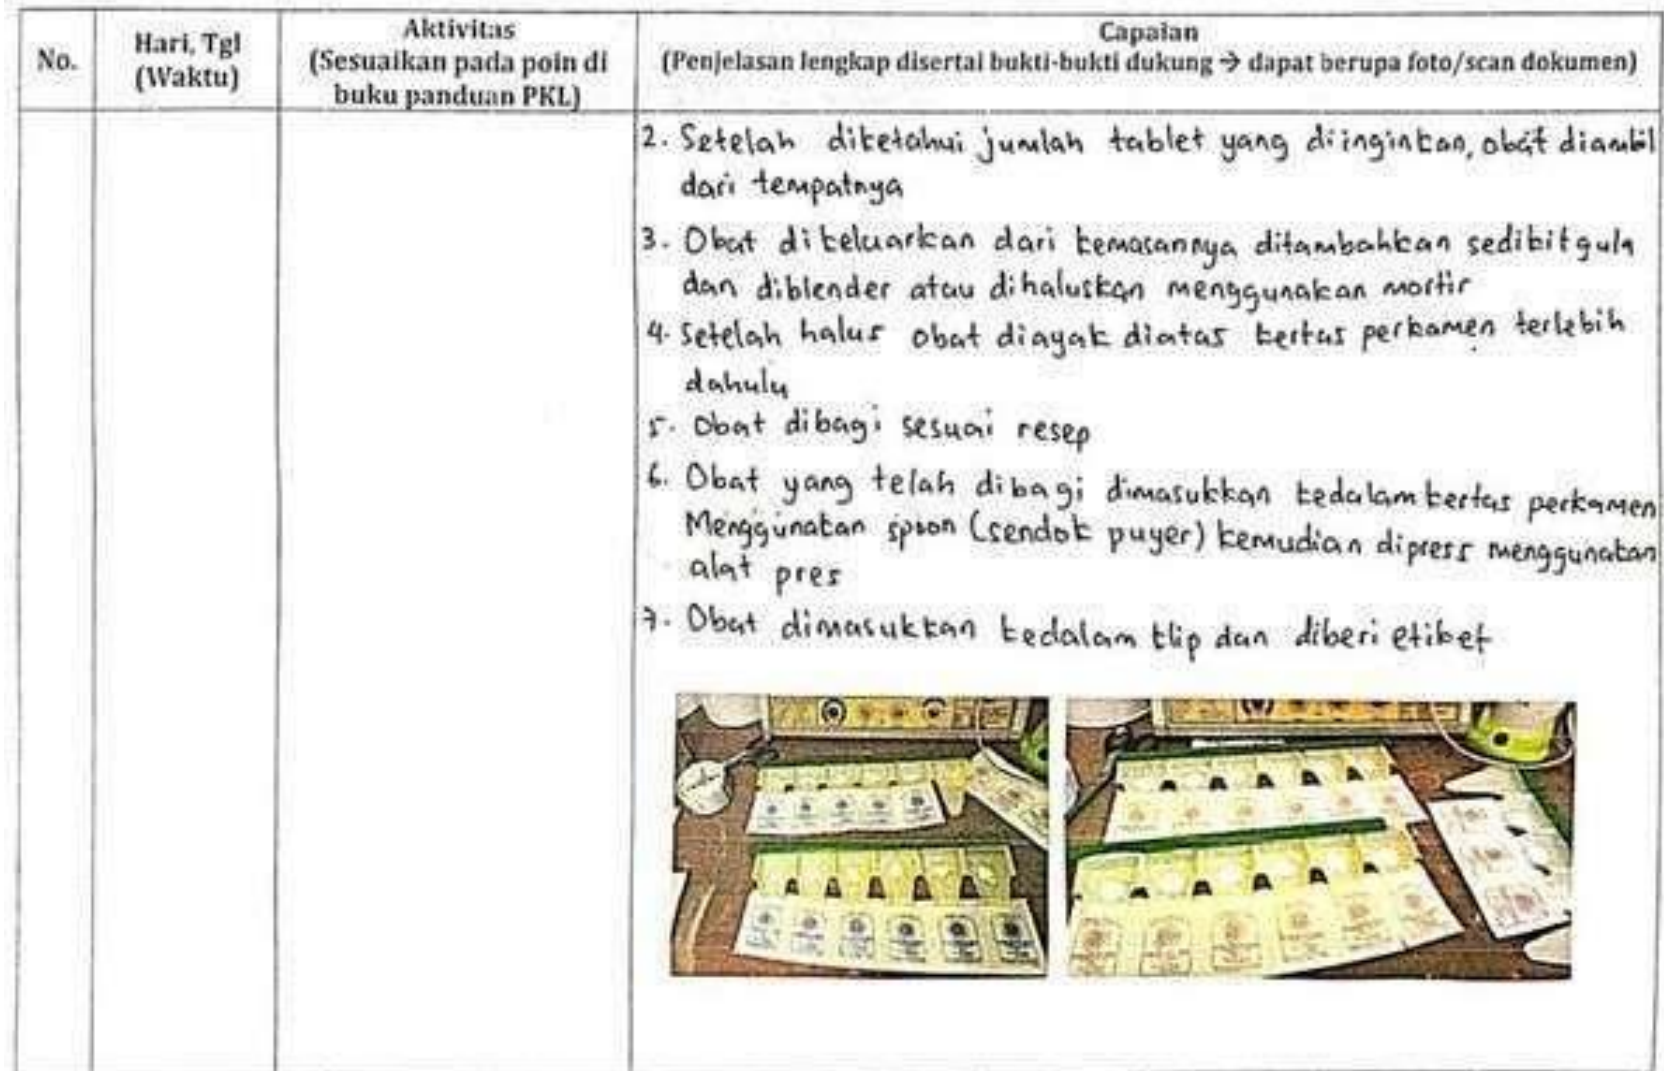 No.
Hari, Tgl
(Waktu)
Aktivitas
(Sesuaikan pada poin di
buku panduan PKL)
Capaian
(Penjelasan lengkap disertai bukti-bukti dukung → dapat berupa foto/scan dokumen)
2. Setelah diketahui jumlah tablet yang diinginkan, obat diambil
dari tempatnya
3. Obat dikeluarkan dari kemasannya ditambahkan sedikit gula
dan diblender atau dihaluskan menggunakan mortir
4. Setelah halus obat diayak diatas kertas perkamen terlebih
dahulu
5. Obat dibagi sesuai resep
6. Obat yang telah dibagi dimasukkan kedalam kertas perkamen
Menggunakan spoon (sendok puyer) kemudian dipress menggunakan
alat pres
7. Obat dimasukkan kedalam klip dan diberi etiket